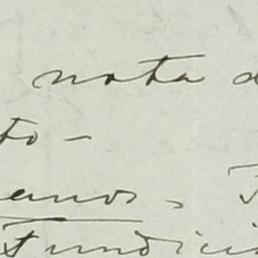 nota d
to -
anos,
Fundici